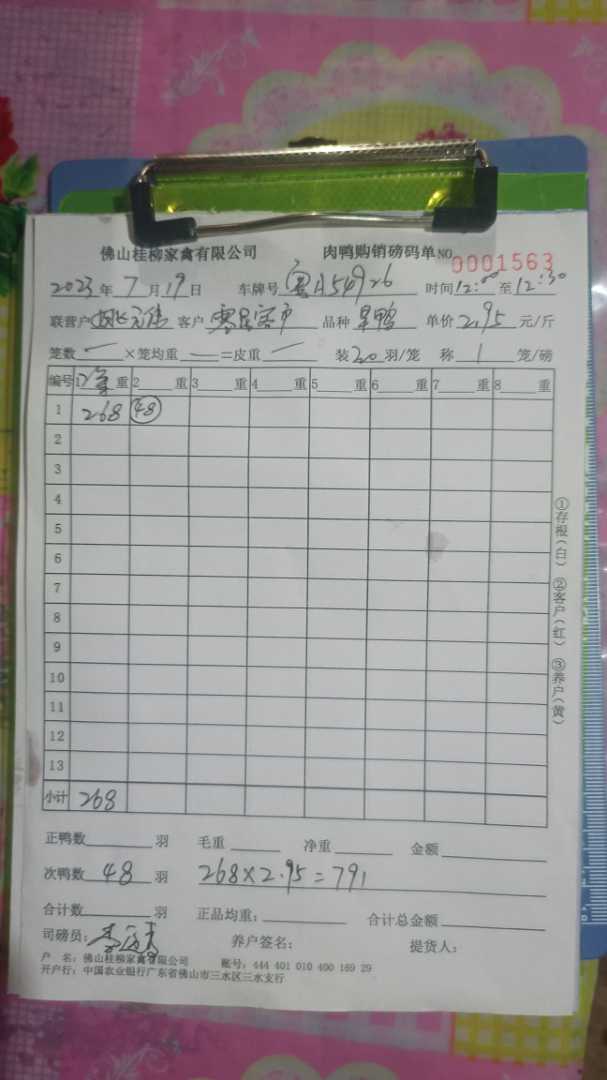 佛山桂柳家禽有限公司 肉鸭购销磅码单 NO 0001563
2023年7月19日 车牌号 粤A54926 时间12:00至12:30
联营户 客户 零星客户 品种 单价2.95元/斤
笼数 — ×笼均重 — =皮重 — 装20羽/笼 称1笼/磅
编号 1 重 2 重 3 重 4 重 5 重 6 重 7 重 8 重
1 268 48
2
3
4
5
6
7
8
9
10
11
12
13
小计 268
①存根(白) ②客户(红) ③养户(黄)
正鸭数 羽 毛重 净重 金额
次鸭数 48 羽 268×2.95=791
合计数 羽 正品均重: 合计总金额
司磅员: 养户签名: 提货人:
户 名: 佛山桂柳家禽有限公司 账号: 444 401 010 400 169 29
开户行: 中国农业银行广东省佛山市三水区三水支行